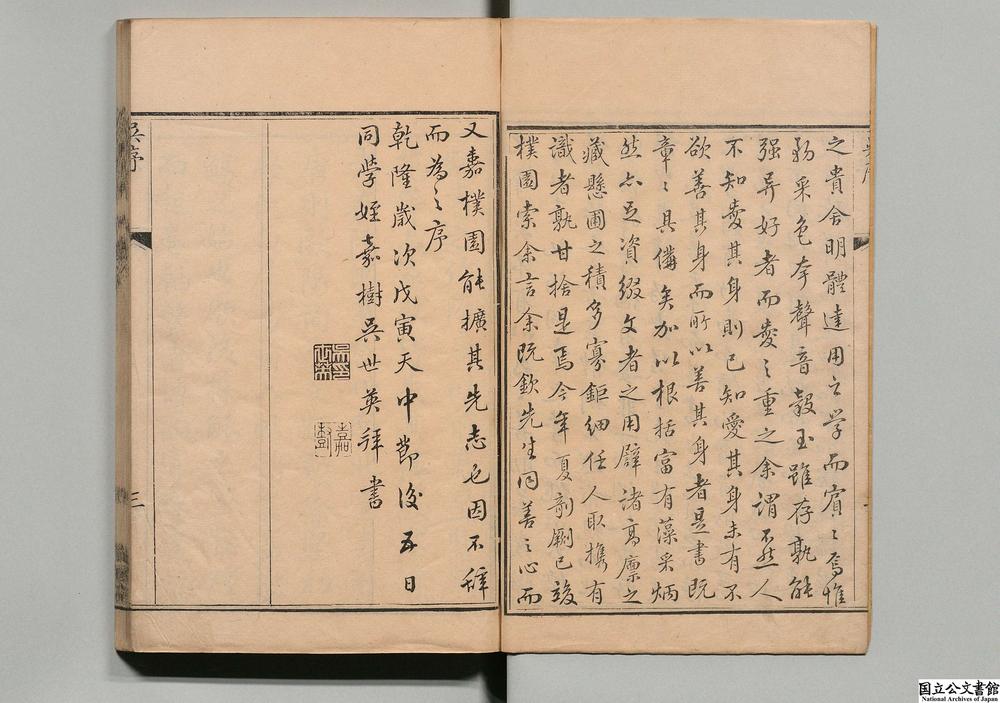 之貴舍明體達用之学而賓〻焉惟
勦采色夲聲音穀玉雖存孰能
强异好者而愛之重之余謂不然人
不知愛其身則已知愛其身未有不
欲善其身而所以善其身者是書既
章〻具備矣加以根括富有藻采炳
然亦足資綴文者之用辟諸高廪之
藏懸圃之積多寡鉅細任人取携有
識者孰甘捨是焉今年夏剞劂已竣
樸園索余言余既欽先生同善之心而
又嘉樸園能擴其先志也因不辞
而為之序
乾隆歲次戊寅天中節後五日
同學姪嘉樹吳世英拜書
吳序
三
嘉
樹
国立公文書館
National Archives of Japan